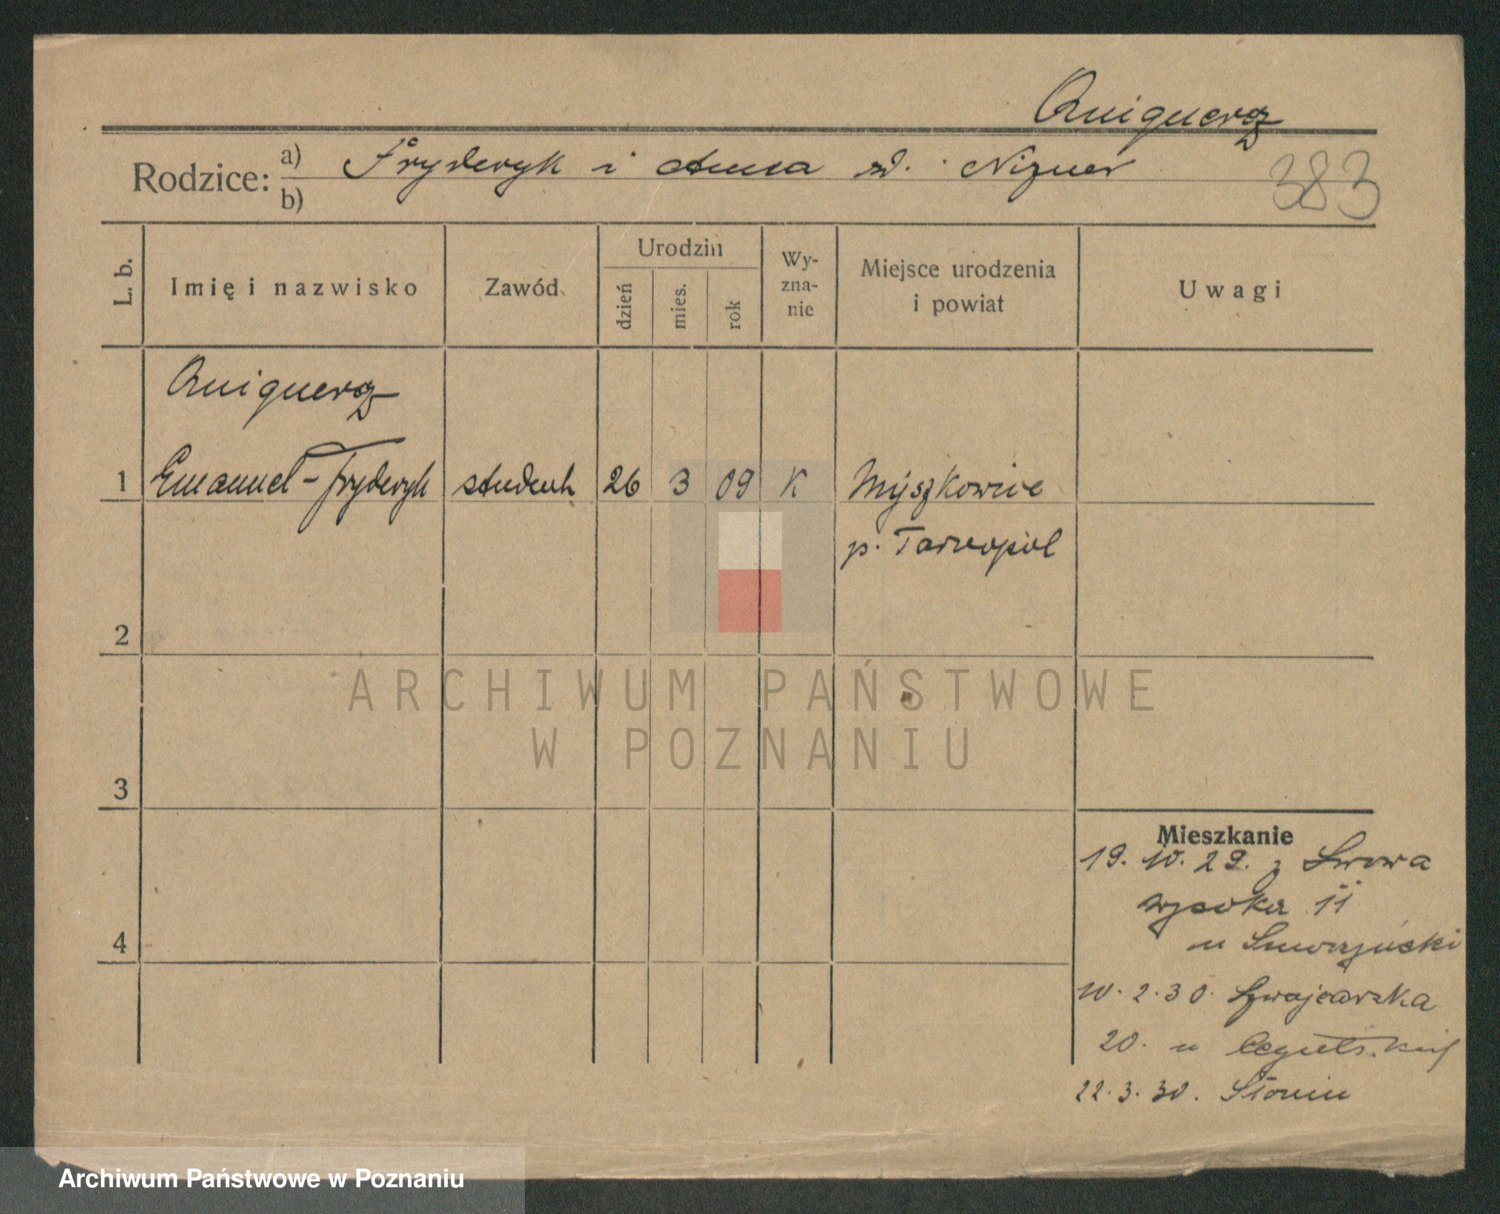 Quiquerez
Rodzice: a) Fryderyk i Anna zd. Nizner
b)
383
L. b. Imię i nazwisko Zawód Urodzin dzień mies. rok Wy-zna-nie Miejsce urodzenia i powiat Uwagi
Quiquerez
1 Emanuel-Fryderyk student 26 3 09 K Myszkowice
p. Tarnopol
2
ARCHIWUM PAŃSTWOWE
W POZNANIU
3
Mieszkanie
19. 10. 29. z Lwowa
wysoka 11
4
u
10. 2. 30. Szwajcarska
20. u
22. 3. 30. Słonim
Archiwum Państwowe w Poznaniu